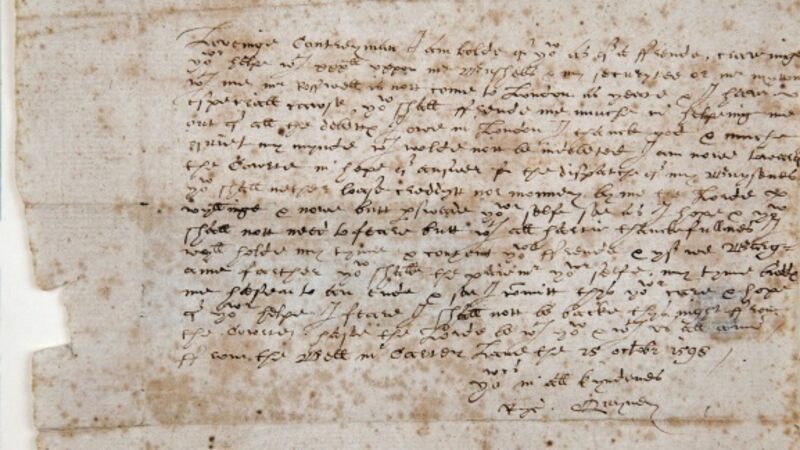 Loveinge Contreyman I am bolde of yow as of a ffrende, craveinge
yowr helpe wth xxxll vppon mr Bushells & my securytee or mr myttons
wth me, mr Rosswell is nott come to London as yeate & I have
especiall cawse, yow shall ffrende me muche in helpeing me
out of all the debtts I owe in London I thancke god & muche
quiet my mynde wch wolde nott be indebted I am nowe towards
the Cowrte in hope of answer for the dispatche of my Buysenes
yow shall nether loase creddytt nor monney by me the Lorde
wyllinge & nowe butt pswade yowr selfe soe as I hope & yow
shall nott need to feare butt wth all hartie thanckfullnes
I wyll holde my tyme & content yowr ffrende & yf we Barg-
aine farther yow shall be the paiemr yowr selfe, my tyme bidds
me hasten to an ende & soe I committ thys yowr care & hope
of yowr helpe I feare I shall nott be backe thys night ffrom
the Cowrte, haste the Lorde be wth yow & wth vs all amen
ffrom the Bell in Carter Lane the 25 octobr 1598
yowrs in all kyndenes
Ryc. Quyney